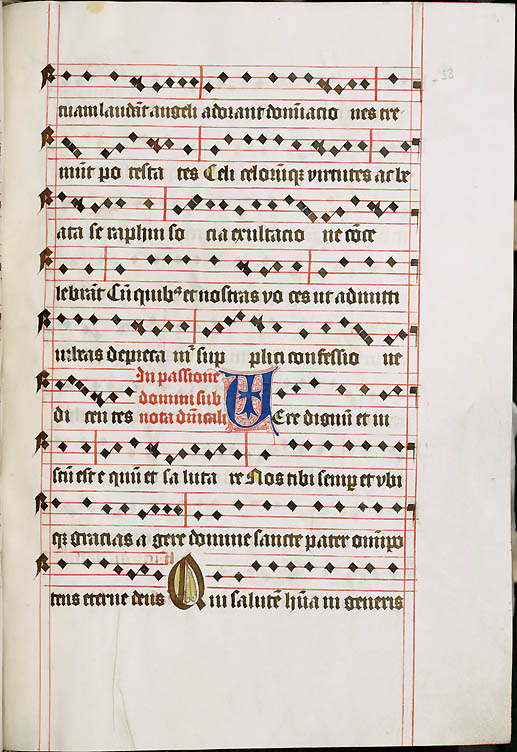 58
tuam laudāt angeli adorant dominacio nes tre
mūt po testa tes Celi celorūqꝫ virtutes ac be
ata se raphin so cia exultacio ne cōce
lebrāt Cū quibꝰ et nostras vo ces ut admitti
iubeas depreca mʳ sup plici confessio ne
In passione
domini sub
di cen tes nota dn̄icali Vere dignū et iu
stū est e quū et sa luta re Nos tibi semꝑ et vbi
qꝫ gracias a gere domine sancte pater omīpo
tens eterne deus Qui salutē hūa ni generis